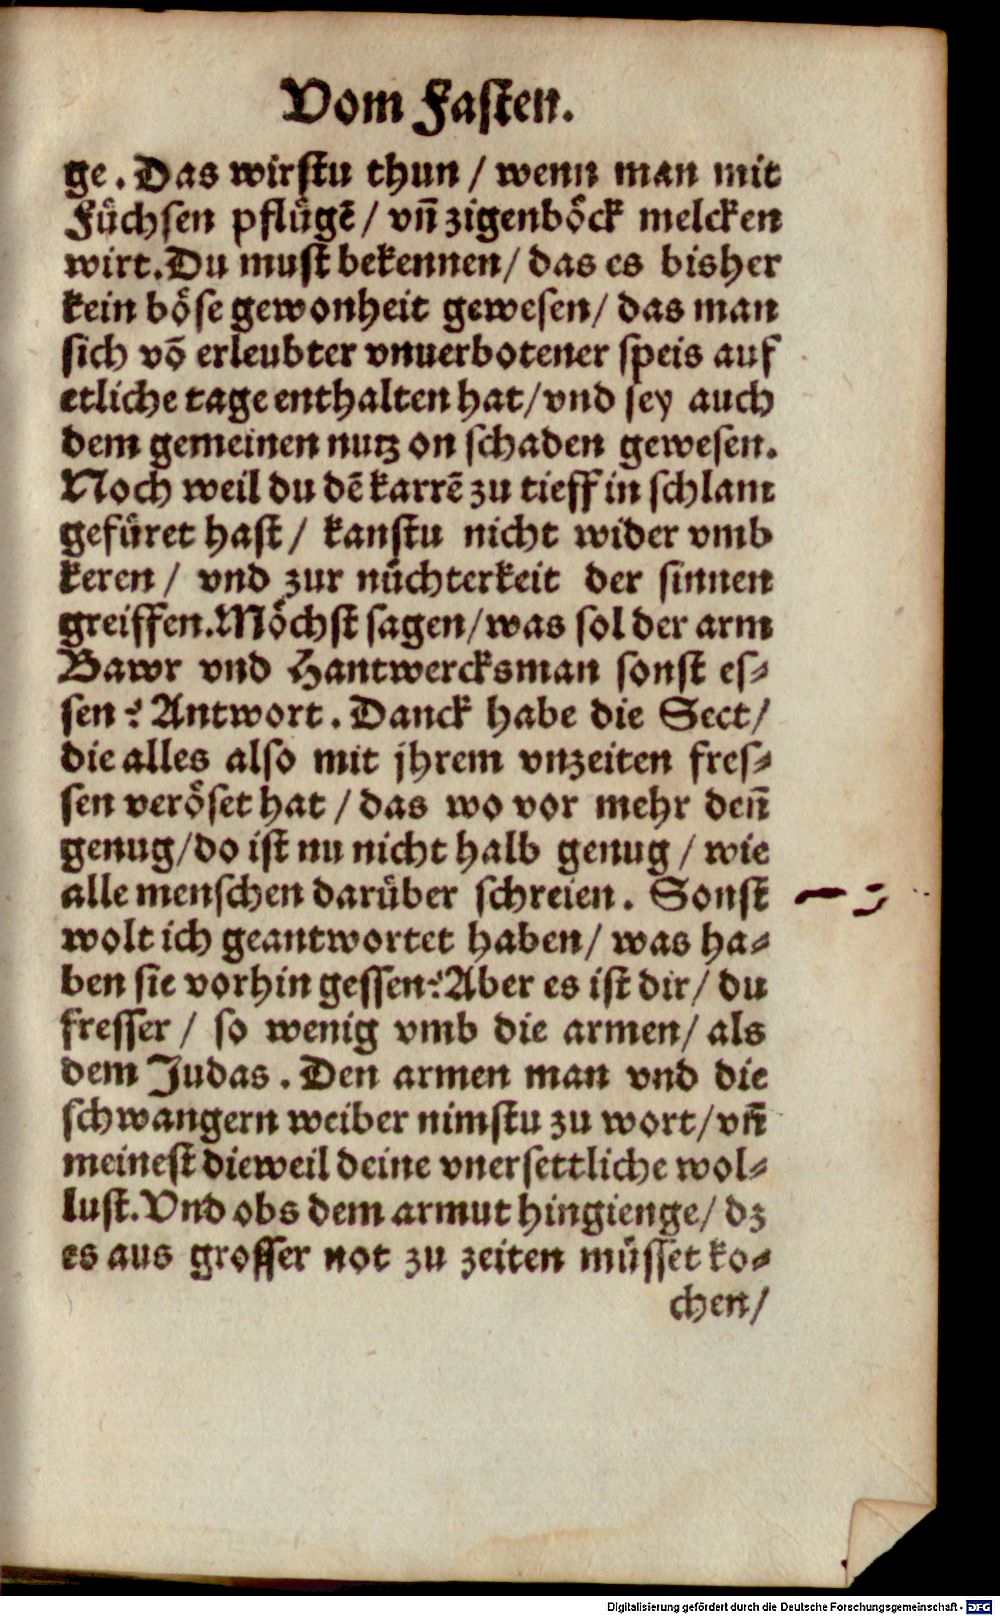 Vom Fasten.
ge. Das wirstu thun / wenn man mit
Füchsen pflügē / vn̄ zigenböck melcken
wirt. Du must bekennen / das es bisher
kein böse gewonheit gewesen / das man
sich vō erleubter vnuerbotener speis auf
etliche tage enthalten hat / vnd sey auch
dem gemeinen nutz on schaden gewesen.
Noch weil du dē karrē zu tieff in schlam
gefüret hast / kanstu nicht wider vmb
keren / vnd zur nüchterkeit der sinnen
greiffen. Möchst sagen / was sol der arm
Bawr vnd Hantwercksman sonst es-
sen? Antwort. Danck habe die Sect /
die alles also mit jhrem vnzeiten fres-
sen veröset hat / das wo vor mehr den̄
genug / do ist nu nicht halb genug / wie
alle menschen darüber schreien. Sonst
wolt ich geantwortet haben / was ha-
ben sie vorhin gessen? Aber es ist dir / du
fresser / so wenig vmb die armen / als
dem Judas. Den armen man vnd die
schwangern weiber nimstu zu wort / vn̄
meinest dieweil deine vnersettliche wol-
lust. Vnd obs dem armut hingienge / dz
es aus grosser not zu zeiten müsset ko-
chen /
Digitalisierung gefördert durch die Deutsche Forschungsgemeinschaft - DFG